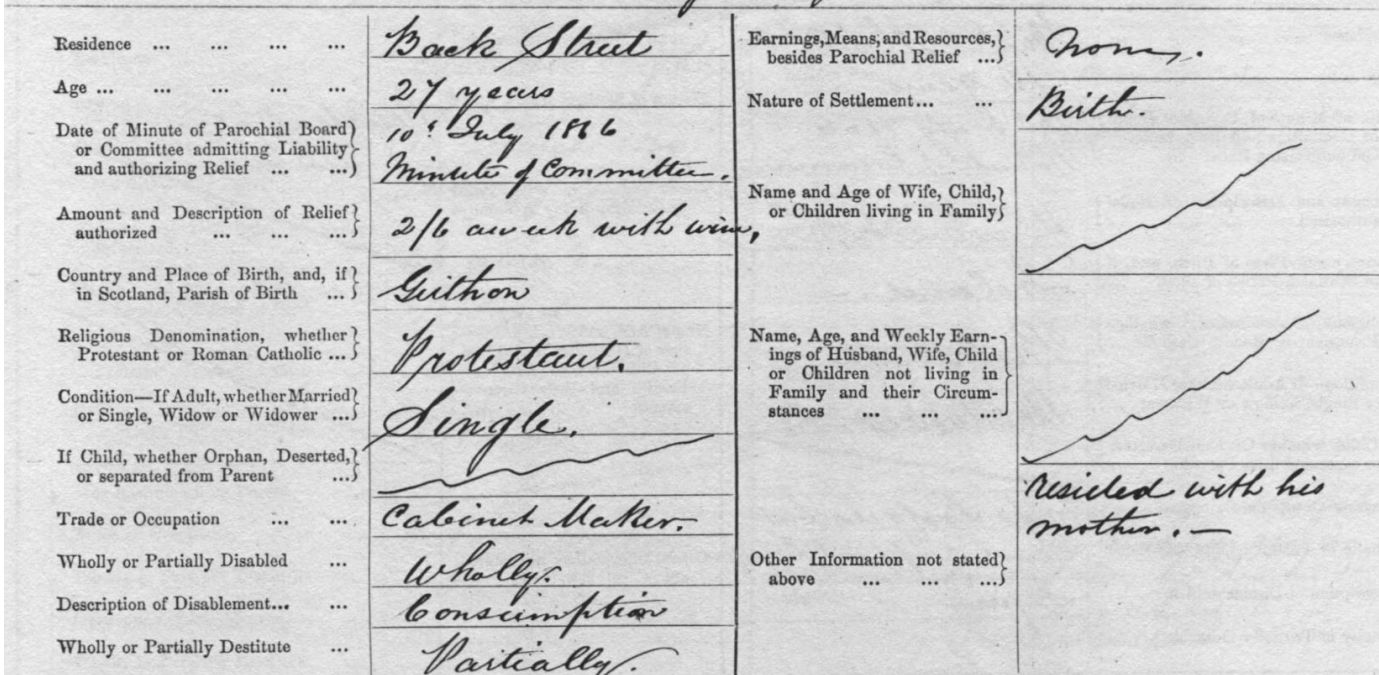 Residence ... ... ... ... Back Street
Age ... ... ... ... ... 27 years
Date of Minute of Parochial Board 10th July 1866
or Committee admitting Liability
and authorizing Relief ... ... Minute of Committee.
Amount and Description of Relief
authorized ... ... ... 2/6 a week with wine,
Country and Place of Birth, and, if
in Scotland, Parish of Birth ... Guthon
Religious Denomination, whether
Protestant or Roman Catholic ... Protestant.
Condition—If Adult, whether Married
or Single, Widow or Widower ... Single.
If Child, whether Orphan, Deserted,
or separated from Parent ...
Trade or Occupation ... ... Cabinet Maker.
Wholly or Partially Disabled ... Wholly.
Description of Disablement... ... Consumption
Wholly or Partially Destitute ... Partially.
Earnings, Means, and Resources,
besides Parochial Relief ... None.
Nature of Settlement... ... Birth.
Name and Age of Wife, Child,
or Children living in Family
Name, Age, and Weekly Earn-
ings of Husband, Wife, Child
or Children not living in
Family and their Circum-
stances ... ... ...
resided with his
mother.—
Other Information not stated
above ... ... ...